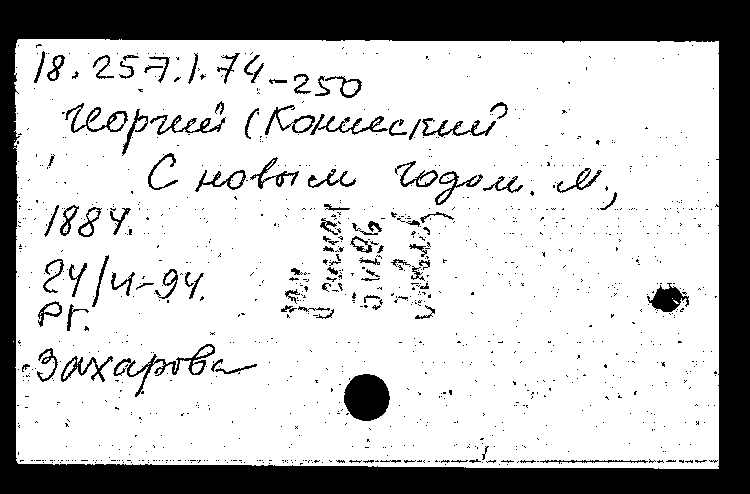 18.257.1.74-250
Георгий (Конисский
С новым годом. М.,
1884.
24/4-94.
РГ.
Захарова
5.VI.96